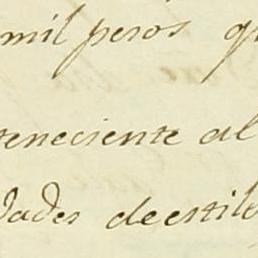 mil pesos q
teneciente al
dades de estilo